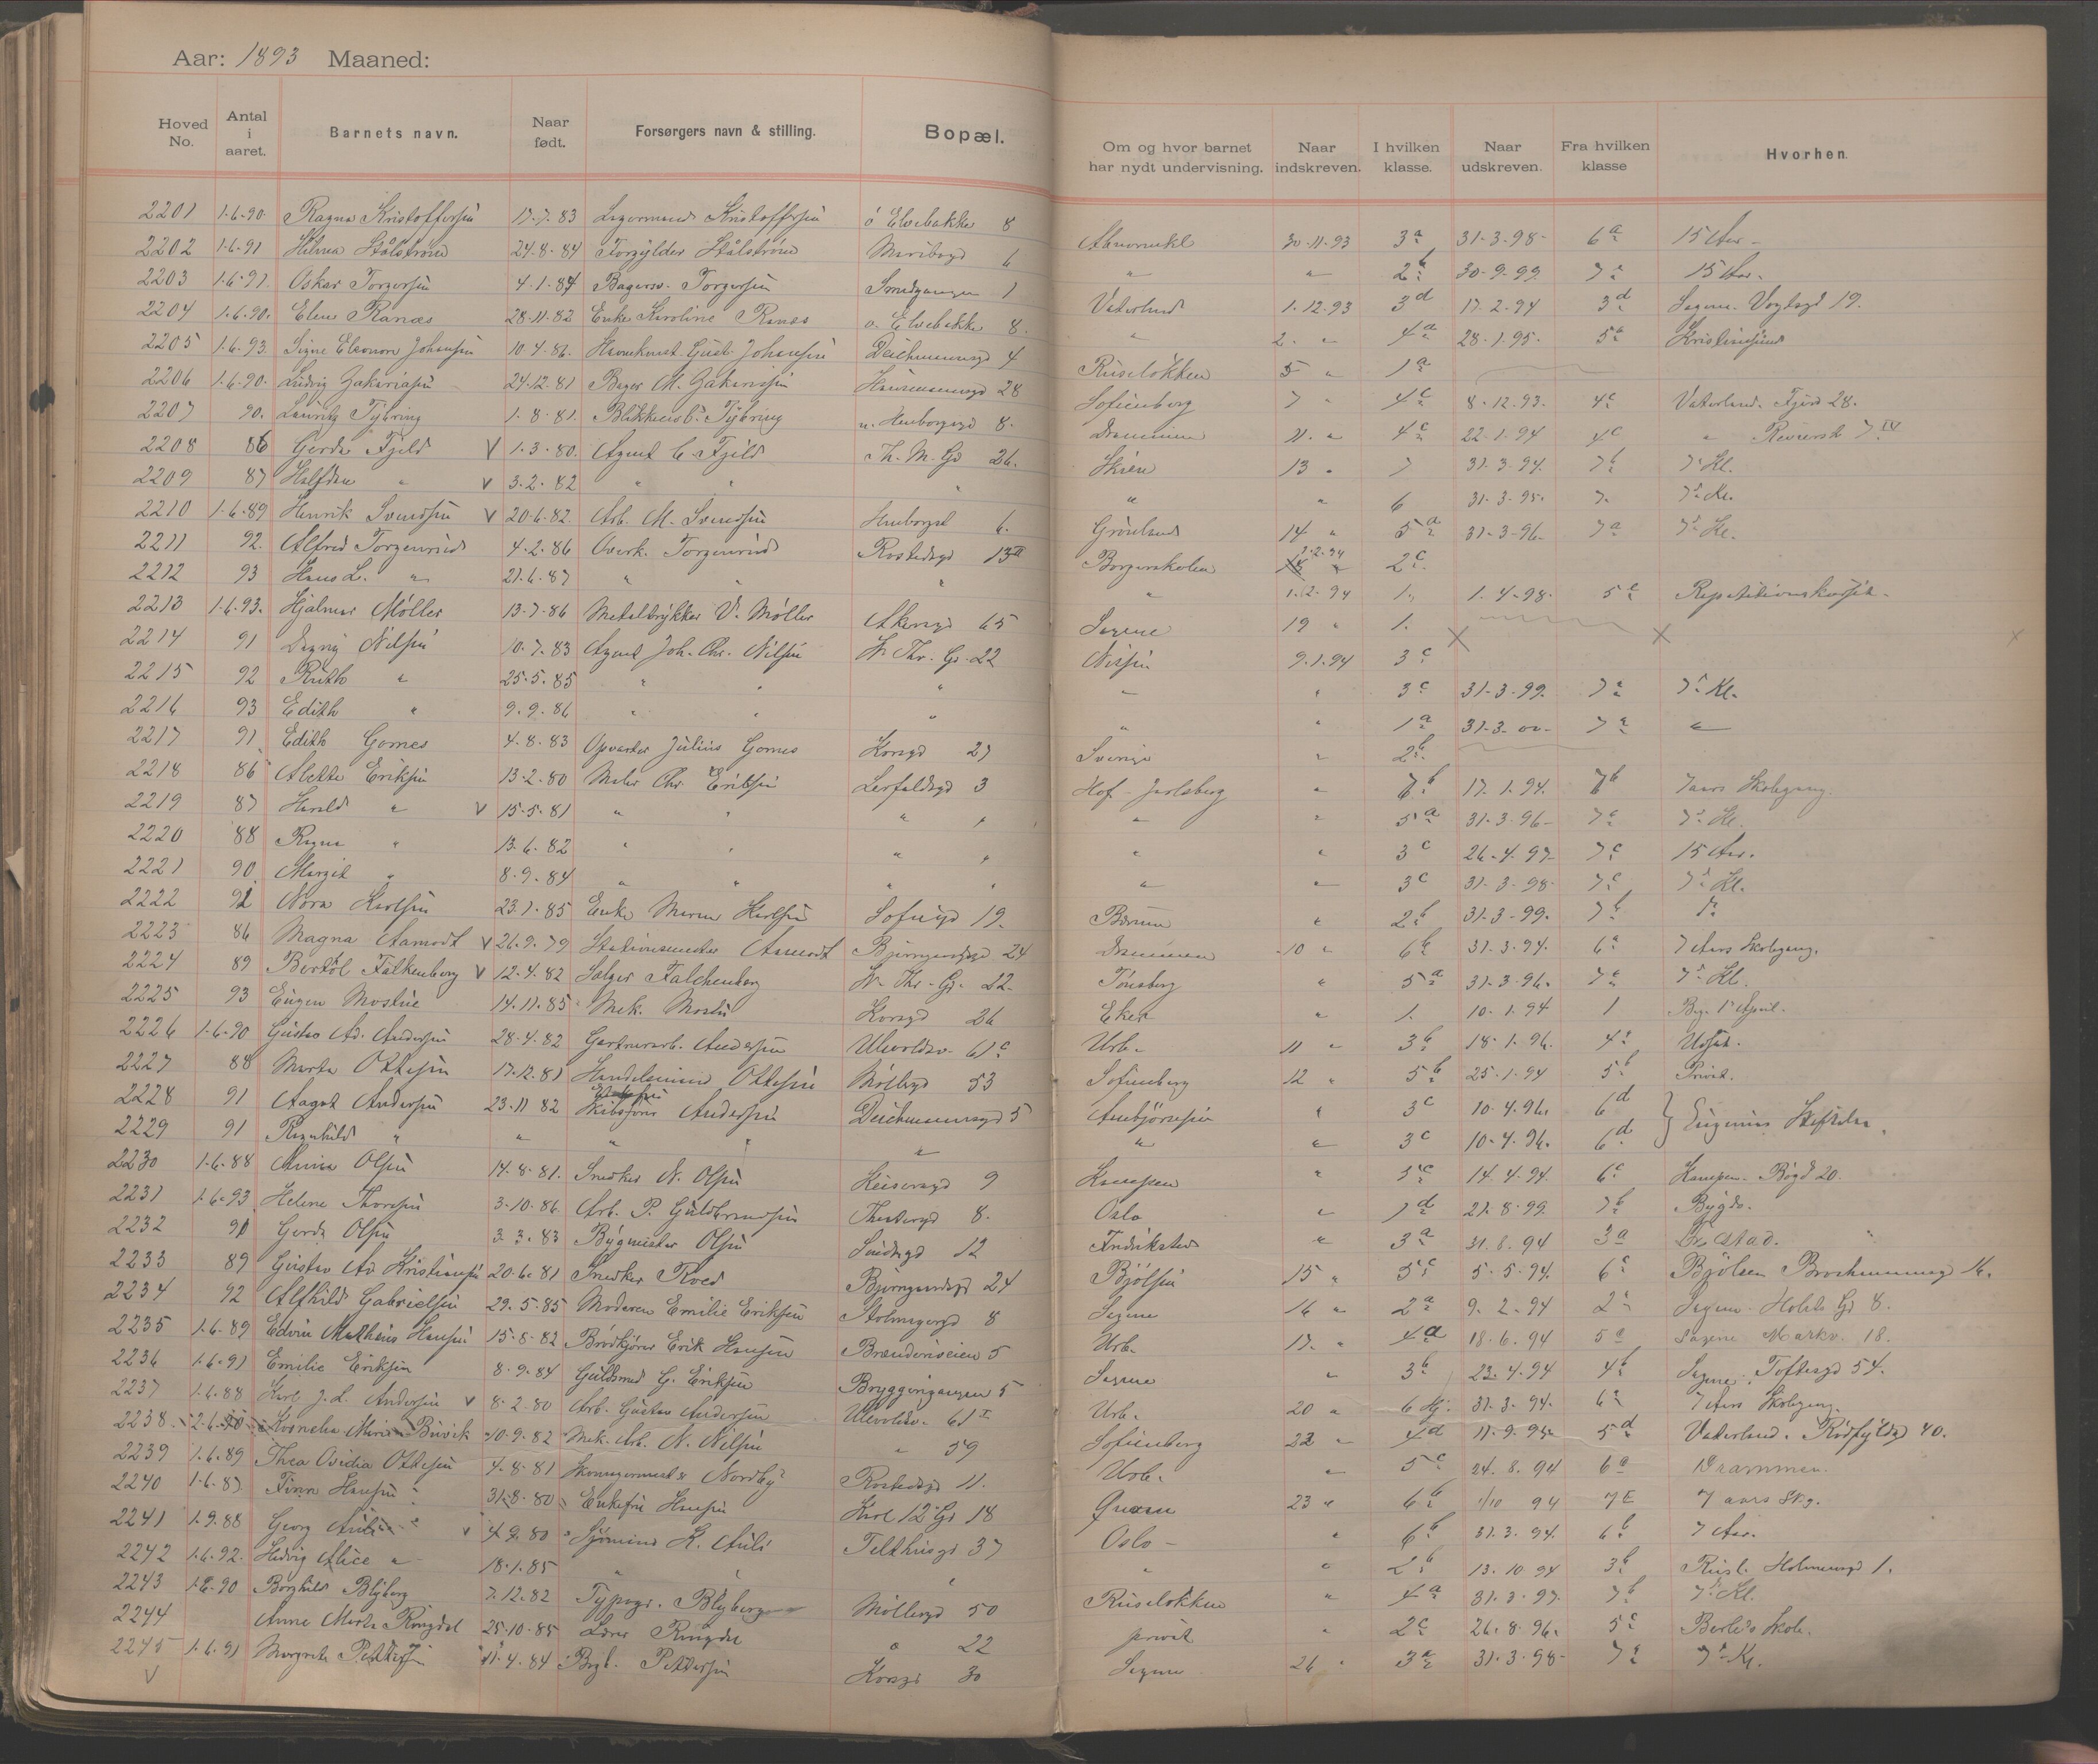 Aar: 1893 Maaned:
Hoved No. Antal i aaret. Barnets navn. Naar født. Forsørgers navn & stilling. Bopæl. Om og hvor barnet har nydt undervisning. Naar indskreven. I hvilken klasse. Naar udskreven. Fra hvilken klasse Hvorhen.
2201 1.6.90. Ragna Kristoffersen 17.7.83 Kristoffersen ö Elvebakke 8 30.11.93 3a 31.3.98 6a 15 Aar
2202 1.6.91 Hilma Stålström 24.8.84 Stålström Maribogd 6 " " 2b 30.9.99. 7a 15 Aar.
2203 1.6.91. Oskar Torgersen 4.1.84 Bagersv. Torgersen Smedgangen 1 Vaterland 1.12.93 3d 17.2.94 3d Sagene. Vogtsgd 19.
2204 1.6.90. Elise Ranæs 28.11.82 Enke Karoline Ranæs ø. Elvebakke 8. " 2. " 4a 28.1.95. 5a Kristiansund
2205 1.6.93. Signe Eleonore Johansen 10.4.86. Gust. Johansen Deichmansgd 4 Ruseløkken 5 " 1a
2206 1.6.90. Ludvig Zakariasen 24.12.81 Bager M. Zakariasen Hausmansgd 28 Sofienberg 7 " 4c 8.12.93. 4c Vaterland. Fjerd 28.
2207 90. Lauritz Tybring 1.8.81. Tybring 8. Drammen 11. " 4c 22.1.94 4c " 7 IV
2208 86 Gerda Fjeld V 1.3.80. Agent C. Fjeld Th. M. Gd 26. Skien 13 " 7 31.3.94. 7b 7de Kl.
2209 87 Halfdan " V 3.2.82 " " " " " 6 31.3.95. 7. 7de Kl.
2210 1.6.89 Henrik Svendsen V 20.6.82. Arb. M. Svendsen 6. Grönland 14 " 5a 31.3.96. 7a 7de Kl.
2211 92. Alfred Torgenrud 4.2.86 Overk. Torgenrud Rostedsgd 13 II Borgerskolen 1.2.94 2c.
2212 93 Hans L. " 21.6.87 " " " " 1.2.94 1. 1.4.98. 5c
2213 1.6.93. Hjalmar Møller 13.7.86 Metaltrykker V. Møller Akersgd 65 Sagene 19 " 1.
2214 91 Dagny Nilsen 10.7.83 Agent Joh. Chr. Nilsen W. Thr. Gd. 22 9.1.94 3c
2215 92 Ruth " 25.5.85 " " " " " 3c 31.3.99. 7a 7de Kl.
2216 93 Edith " 9.9.86 " " " " " 1a 31.3.00. 7a "
2217 91 Edith Gomes 4.8.83 Opvarter Julius Gomes Korsgd 27 Sverige " 2b.
2218 86 Alette Eriksen 13.2.80 Maler Chr. Eriksen Lerfaldsgd 3 Hof - Jarlsberg " 7b 17.1.94. 7b 7 aars Skolegang.
2219 87 Harald " V 15.5.81 " " " " " " 5a 31.3.96. 7a 7de Kl.
2220 88 Ragna " 13.6.82 " " " " " " 3c 26.4.97. 7c 15 Aar.
2221 90. Margit " 8.9.84 " " " " " " 3c 31.3.98 7c 7de Kl.
2222 91 Nora Karlsen 23.1.85 Enke Maren Karlsen Sofiegd 19. Bærum " 2b 31.3.99. 7b
2223 86 Magna Aamodt V 26.9.79 Stationsmester Aamodt 24 Drammen 10 " 6b 31.3.94. 6a 7 Aars Skolegang.
2224 89 Bertol Falkenberg V 12.4.82 Sælger Falchenberg W. Thr. Gd. 22. Tønsberg " 5a 31.3.96. 7a 7de Kl.
2225 93 Eugen Mostue 14.11.85 Mek. Mostue Korsgd 26 Eker " 1. 10.1.94 1 Beg. 1st April.
2226 1.6.90 Gustav Ad. Andersen 28.4.82 Gartnerarb. Andersen Ulevoldsv. 61c Urb. 11 " 3b 18.1.96. 4a
2227 88 Marta Ottesen 17.12.81 Handelsmand Ottesen Møllergd 53 Sofienberg 12 " 5b 25.1.94 5b Privat.
2228 91 Aagot Andersen 23.11.82 Skibsfører Andersen Deichmansgd 5 " 3c 10.4.96. 6d
2229 91 Ragnhild " " " " " " " 3c 10.4.96. 6d } Eugenias Stiftelse.
2230 1.6.88 Anna Olsen 14.8.81. Snedker N. Olsen Keisersgd 9 Kampen " 5c 14.4.94. 6c Kampen. Bögd 20.
2231 1.6.93 Helene Thoresen 3.10.86 Arb. P. Guldbrandsen Thorbergd 8. Oslo " 1d 21.8.99. 7b Bygdø.
2232 91 Gerda Olsen 3.3.83 Bygmester Olsen 12 Fredrikstad " 3a 31.8.94 3a
2233 89 Gustav Ad. Kristiansen 20.6.81 Snedker Roed 24 Bjølsen 15 " 5c 5.5.94. 6c Bjølsen 16.
2234 92 Alfhild Gabrielsen 29.5.85 Moderen Emilie Eriksen Stolmagergd 8 Sagene 16 " 2a 9.2.94 2a Sagene. Holsts Gd 8.
2235 1.6.89 Edvin Mathias Hansen 15.8.82 Brødkjører Erik Hansen Brænderiveien 5 Urb. 17. " 4d 18.6.94 5c Sagene Markv. 18.
2236 1.6.91 Emilie Eriksen 8.9.84 Guldsmed G. Eriksen Bryggerigangen 5 Sagene " 3b 23.4.94 4b Sagene. Toftesgd 54.
2237 1.6.88 Karl J. L. Andersen V 8.2.80 Arb. Gustav Andersen Ulevoldsv. 61 I Urb. 20 " 6 31.3.94. 6a 7 Aars Skolegang.
2238 2.6.90 Kornelia Marie Buvik 10.9.82 Mek. Arb. N. Nilsen " 59 Sofienberg 22 " 4d 11.9.94 5d Vaterland. Rødfyldgd 40.
2239 1.6.89 Thea Ovidia Ottesen 4.8.81 Skomagermester Nordby Rostedsgd 11. Urb. " 5c 24.8.94 6a Drammen.
2240 1.6.87 Finn Hansen 31.8.80 Enkefru Hansen Karl 12 Gd 18 23 " 6b 1/10 94 7E 7 aars Skg.
2241 1.9.88 Georg Auli V 4.9.80 Sømand K. Auli Telthusgd 37 Oslo " 6b 31.3.94. 6b 7 Aar.
2242 1.6.92. Hedvig Alice " 18.1.85 " " " " " 2b 13.10.94 3b Rusl. Holmensgd 1.
2243 1.6.90 Borghild Blyberg 7.12.82 Typogr. Blyberg Møllergd 50 Ruseløkken " 4a 31.3.97. 7b 7de Kl.
2244 Anne Marta Ringdal 25.10.85 Lærer Ringdal " 22 privat " 2c 26.8.96. 5c Berles Skole.
2245 1.6.91 Margrete Pettersen 11.4.84 Bogb. Pettersen Korsgd 30 Sagene 26 " 3a 31.3.98 7a 7de Kl.
V